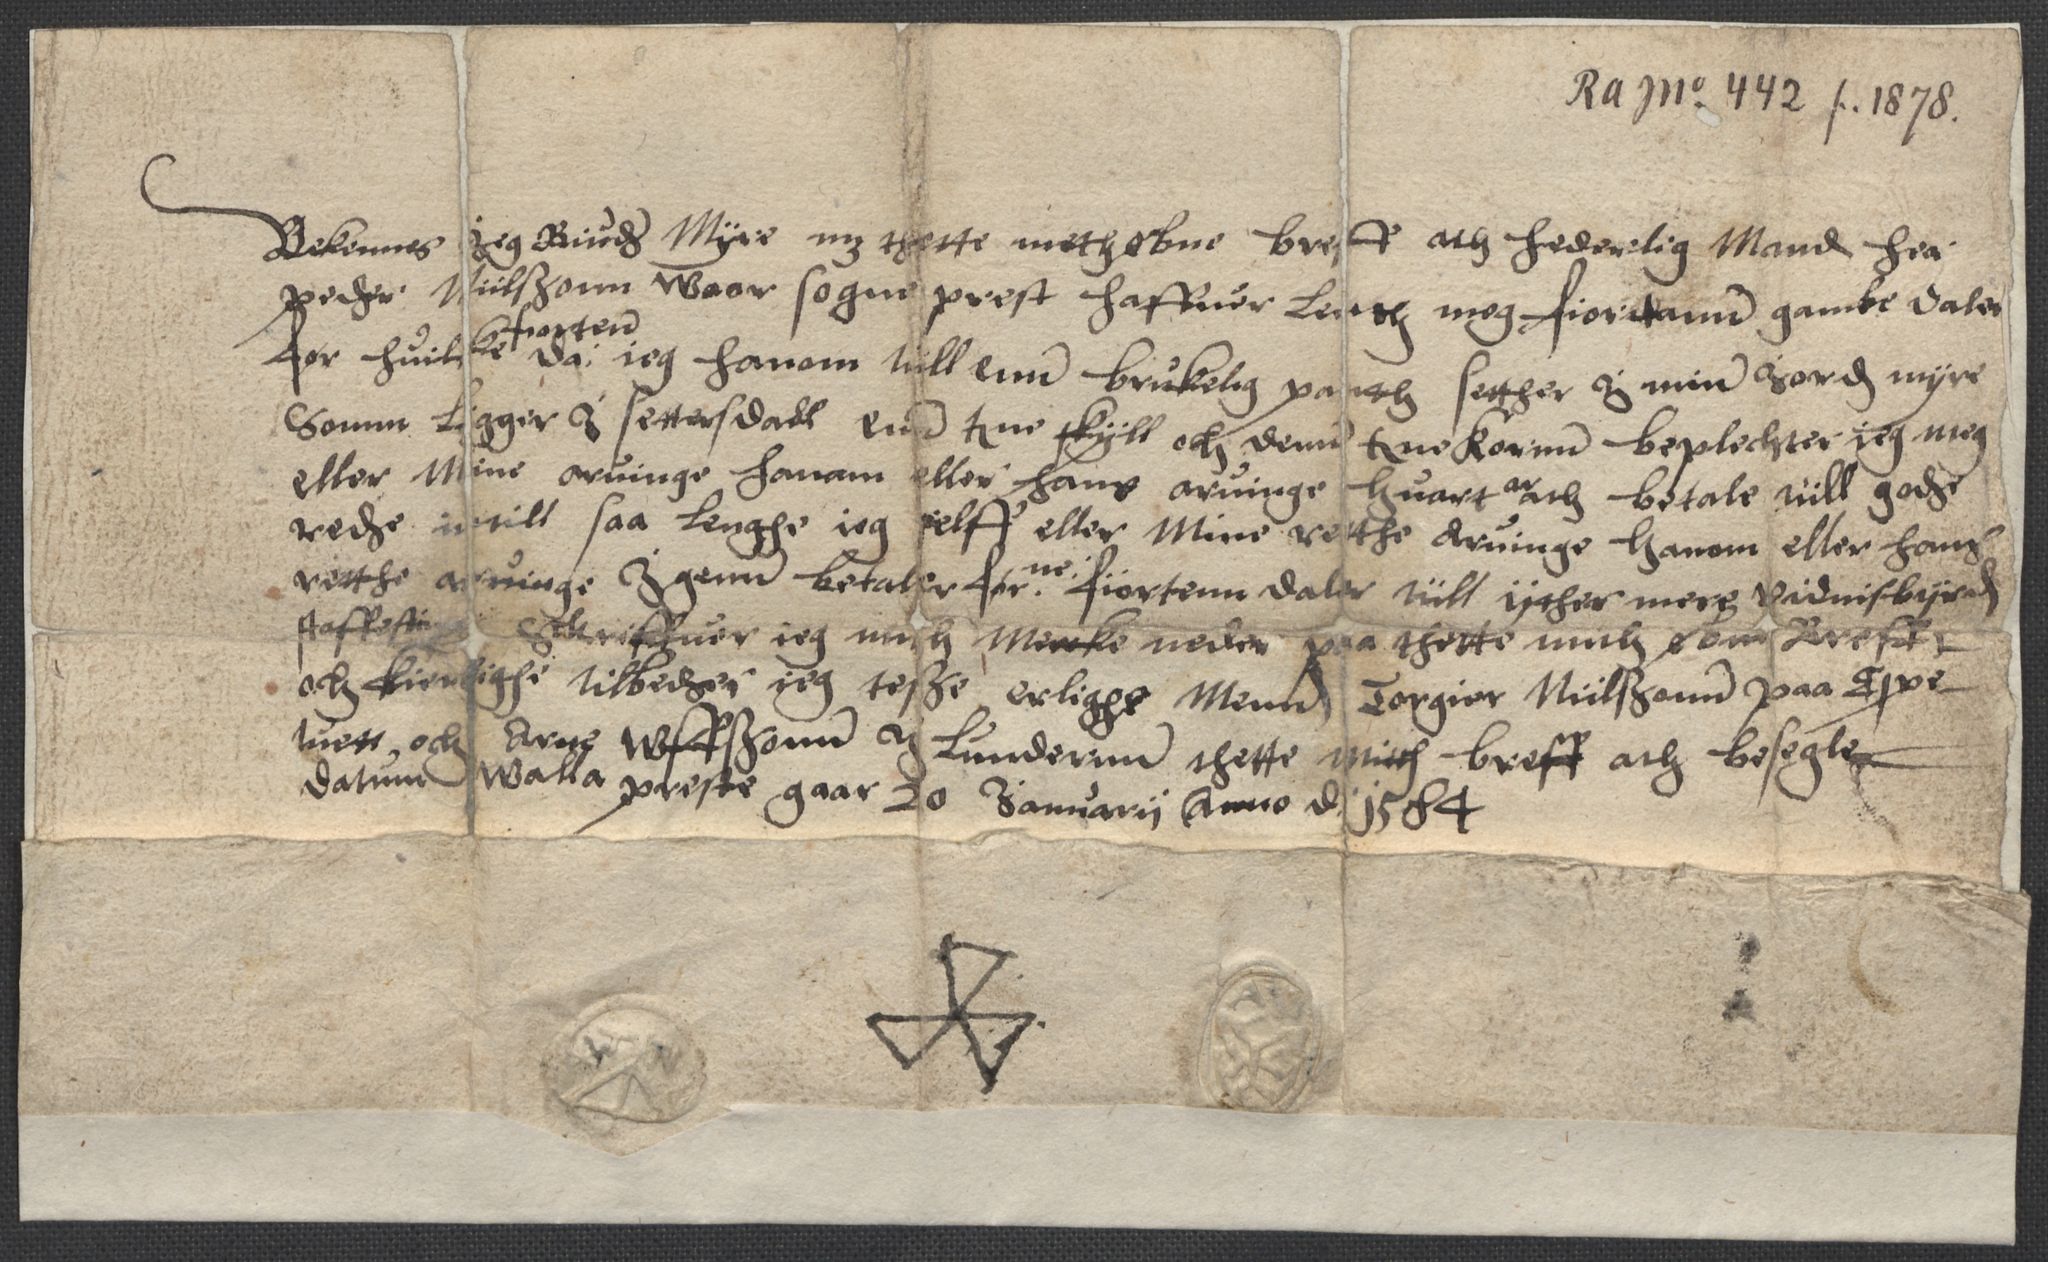 Ra No. 442 f. 1878.
Bekennes Jeg Riudh Myre mz thette meth obne breff ath hederlig Mand her
peder Nielszonn Waar sogne prest haffuer Lenth meg fiortannd gambe daler
for huilcke fiorten da: ieg hanom till enn brukelig panth setther y min Jord myre
Somm Ligger y settersdall enn tne skyll och denn tne Kornn beplechter ieg meg
eller Mine aruinge hanom eller hans aruinge huart ar ath betale till gode
rede intill saa lenghe ieg selff eller Mine retthe Aruinge hanom eller hans
retthe aruinge Igenn betaler for.ne. fiortenn daler till yther mere vidnisbyrd
staffesting Schriffuer ieg mith Merke neder paa thette mith obne Breff
och kierlighe tilbeder ieg tesze erlighe Mennd Torgier Nielszonn paa Espe
tuett och Arne Wffszonn y Lundernn thette mith breff ath besegle
datum Walla preste gaar 20 Januarij Anno d: 1584